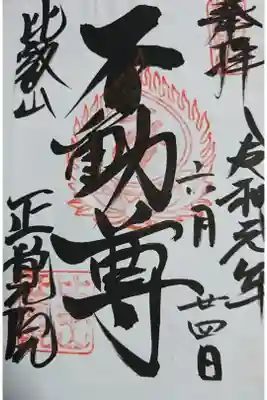 奉拝
令和元年
六月
廿四日
不動尊
比叡山
正覚院